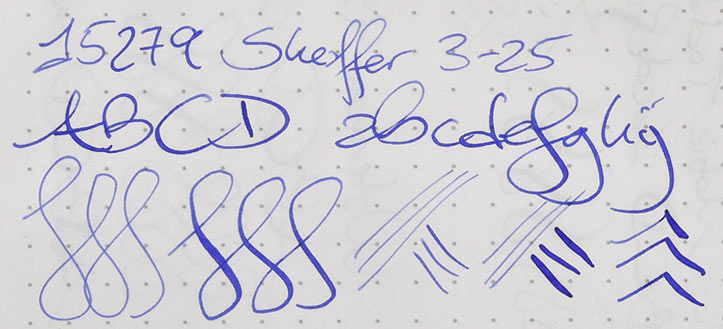 15279 Sheffer 3-25
ABCD abcdefghij